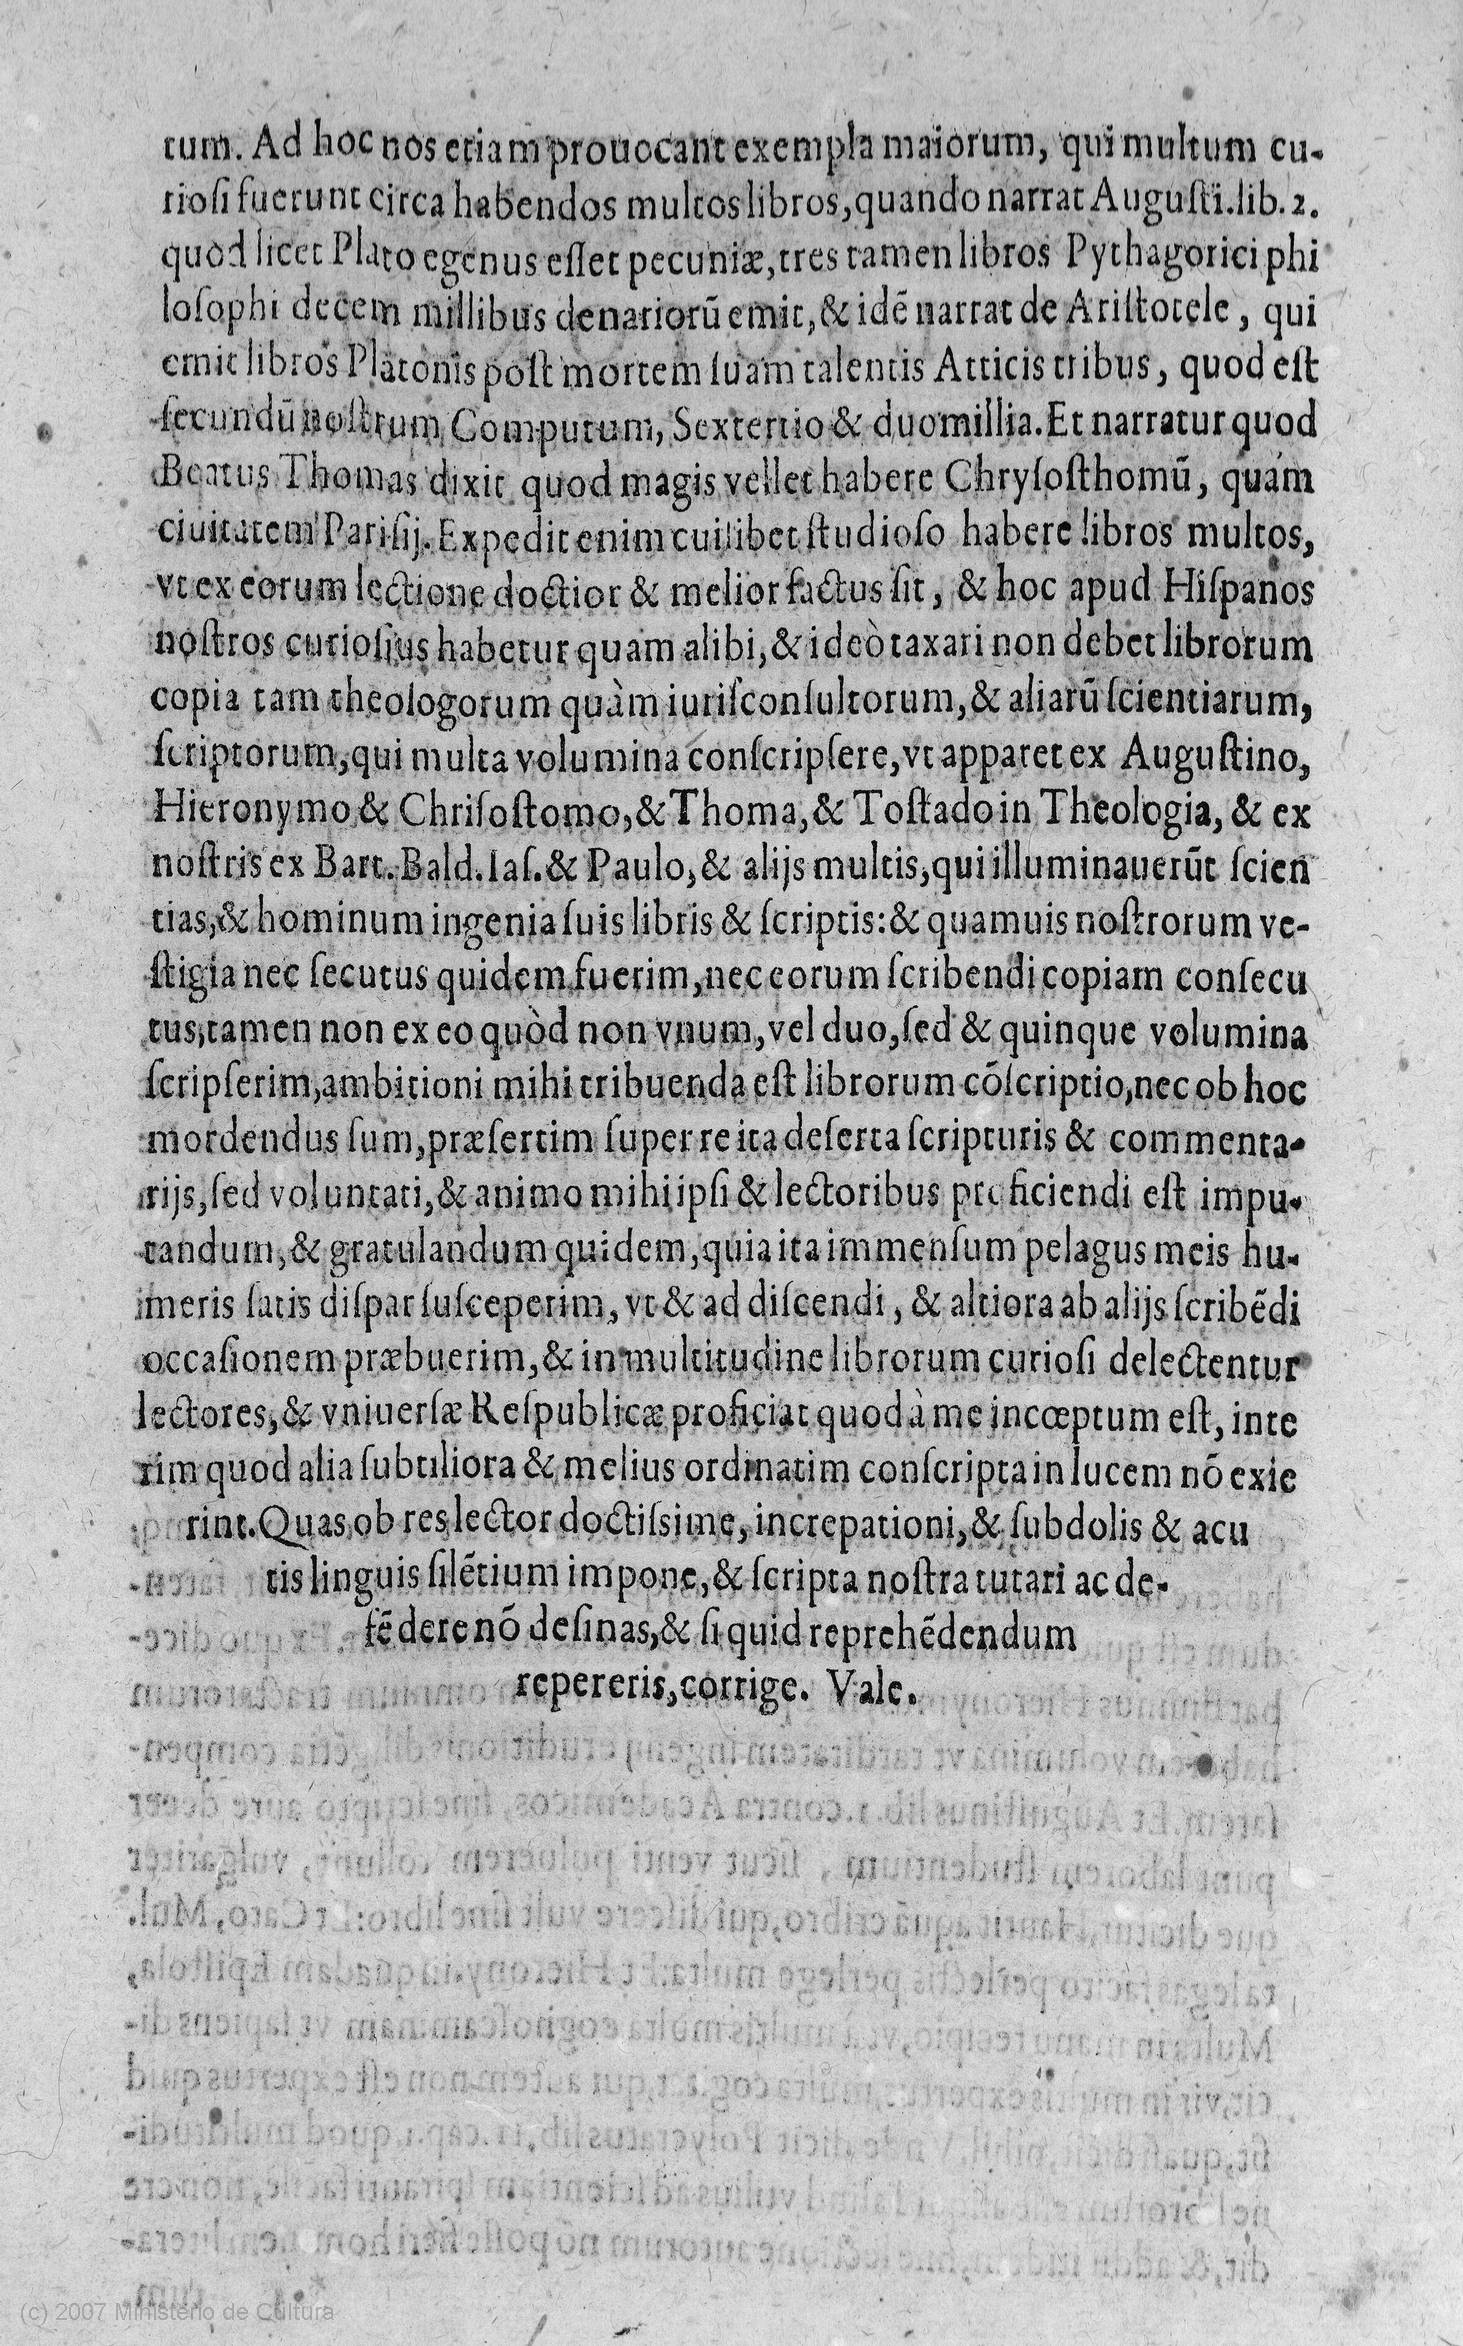 tum. Ad hoc nos etiam prouocant exempla maiorum, qui multum cu-
riosi fuerunt circa habendos multos libros, quando narrat Augustĩ. lib. 2.
quòd licet Plato egenus esset pecuniæ, tres tamen libros Pythagorici phi
losophi decem millibus denariorũ emit, & idẽ narrat de Aristotele, qui
emit libros Platonis post mortem suam talentis Atticis tribus, quod est
secundũ nostrum Computum, Sextertio & duo millia. Et narratur quod
Beatus Thomas dixit quod magis vellet habere Chrysosthomũ, quám
ciuitatem Parisij. Expedit enim cuilibet studioso habere libros multos,
vt ex eorum lectione doctior & melior factus sit, & hoc apud Hispanos
nostros curiosius habetur quam alibi, & ideò taxari non debet librorum
copia tam theologorum quàm iurisconsultorum, & aliarũ scientiarum,
scriptorum, qui multa volumina conscripsere, vt apparet ex Augustino,
Hieronymo & Chrisostomo, & Thoma, & Tostado in Theologia, & ex
nostris ex Bart. Bald. Ias. & Paulo, & alijs multis, qui illuminauerũt scien
tias, & hominum ingenia suis libris & scriptis: & quamuis nostrorum ve-
stigia nec secutus quidem fuerim, nec eorum scribendi copiam consecu
tus, tamen non ex eo quòd non vnum, vel duo, sed & quinque volumina
scripserim, ambitioni mihi tribuenda est librorum cõscriptio, nec ob hoc
mordendus sum, præsertim super re ita deserta scripturis & commenta-
rijs, sed voluntati, & animo mihi ipsi & lectoribus proficiendi est impu-
tandum, & gratulandum quidem, quia ita immensum pelagus meis hu-
meris satis dispar susceperim, vt & ad discendi, & altiora ab alijs scribẽdi
occasionem præbuerim, & in multitudine librorum curiosi delectentur
lectores, & vniuersæ Respublicæ proficiat quod à me incœptum est, inte
rim quod alia subtiliora & melius ordinatim conscripta in lucem nõ exie
rint. Quas ob res lector doctissime, increpationi, & subdolis & acu
tis linguis silẽtium impone, & scripta nostra tutari ac de-
fẽdere nõ desinas, & si quid reprehẽdendum
repereris, corrige. Vale.
(c) 2007 Ministerio de Cultura